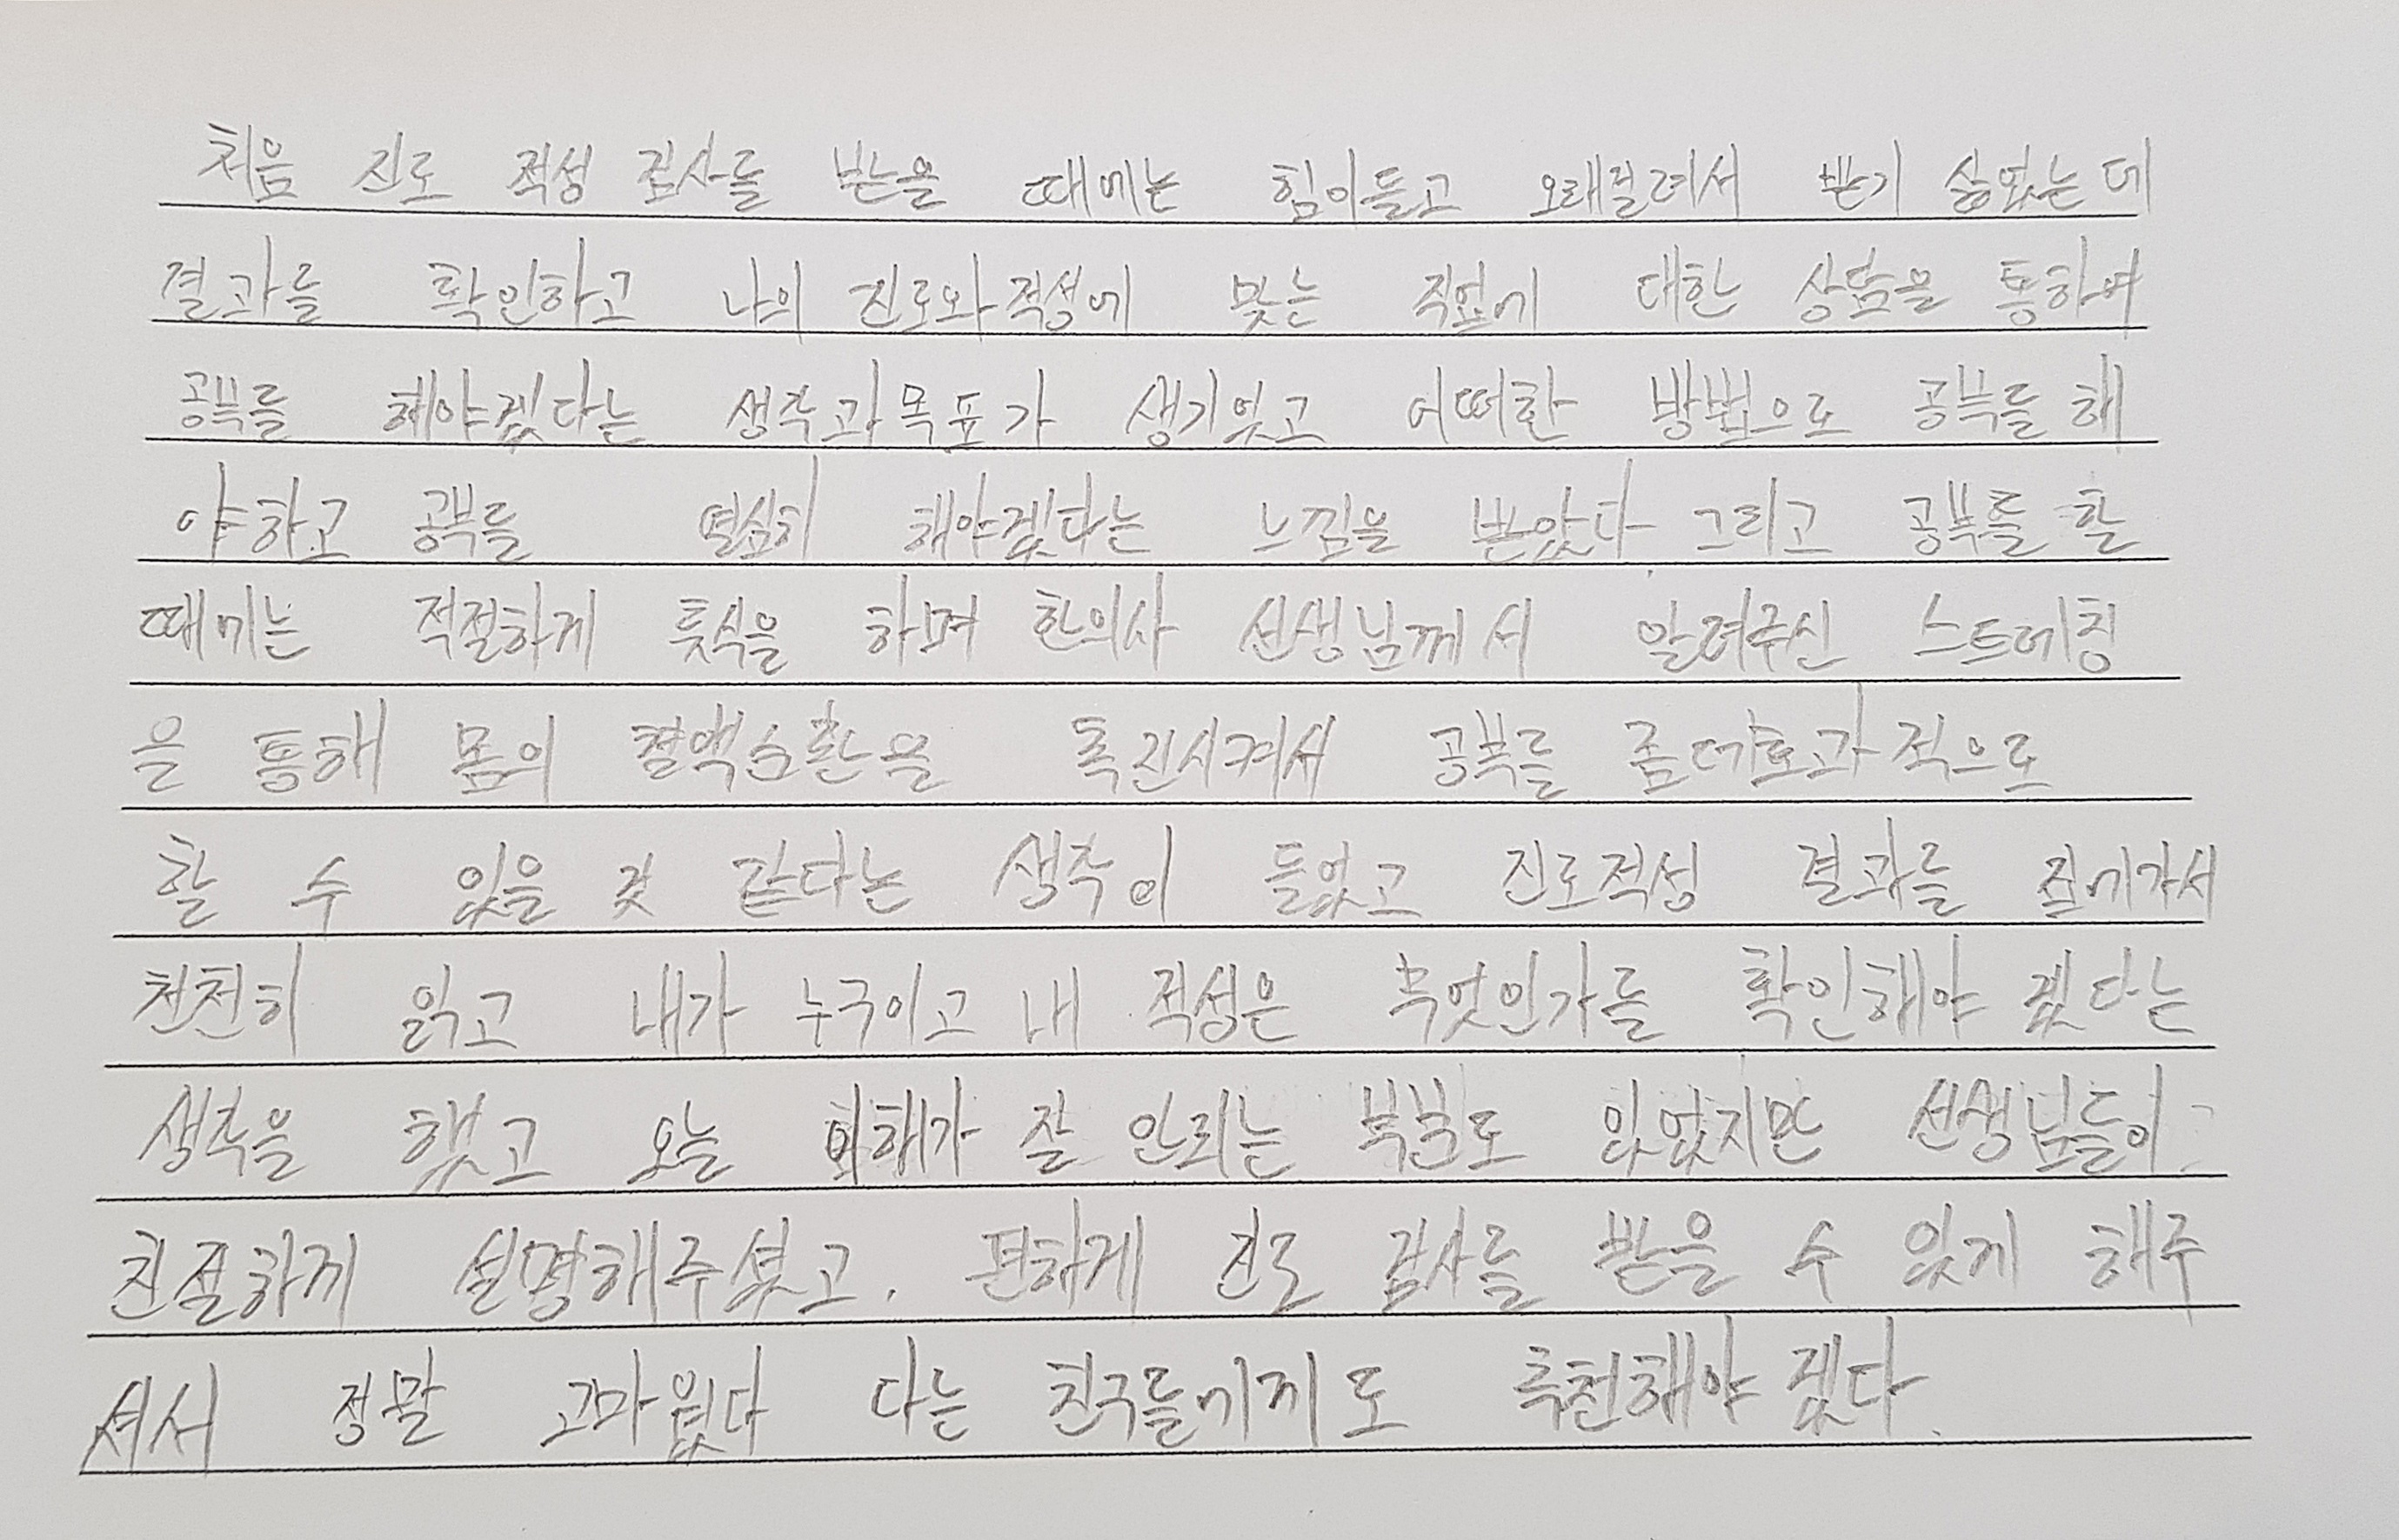 처음 진로 적성 검사를 받을 때에는 힘이들고 오래걸려서 받기 싫었는데
결과를 확인하고 나의 진로와 적성에 맞는 직업에 대한 상담을 통하여
공부를 해야겠다는 생각과 목표가 생기었고 어떠한 방법으로 공부를 해
야하고 공부를 열심히 해야겠다는 느낌을 받았다 그리고 공부를 할
때에는 적절하게 휴식을 하며 한의사 선생님께서 알려주신 스트레칭
을 통해 몸의 혈액순환을 촉진시켜서 공부를 좀더효과적으로
할 수 있을 것 같다는 생각이 들었고 진로적성 결과를 집에가서
천천히 읽고 내가 누구이고 내 적성은 무엇인가를 확인해야 겠다는
생각을 했고 오늘 이해가 잘 안되는 부분도 있었지만 선생님들이
친절하게 설명해주셨고. 편하게 진로 검사를 받을 수 있게 해주
셔서 정말 고마웠다 다른 친구들에게도 추천해야 겠다.